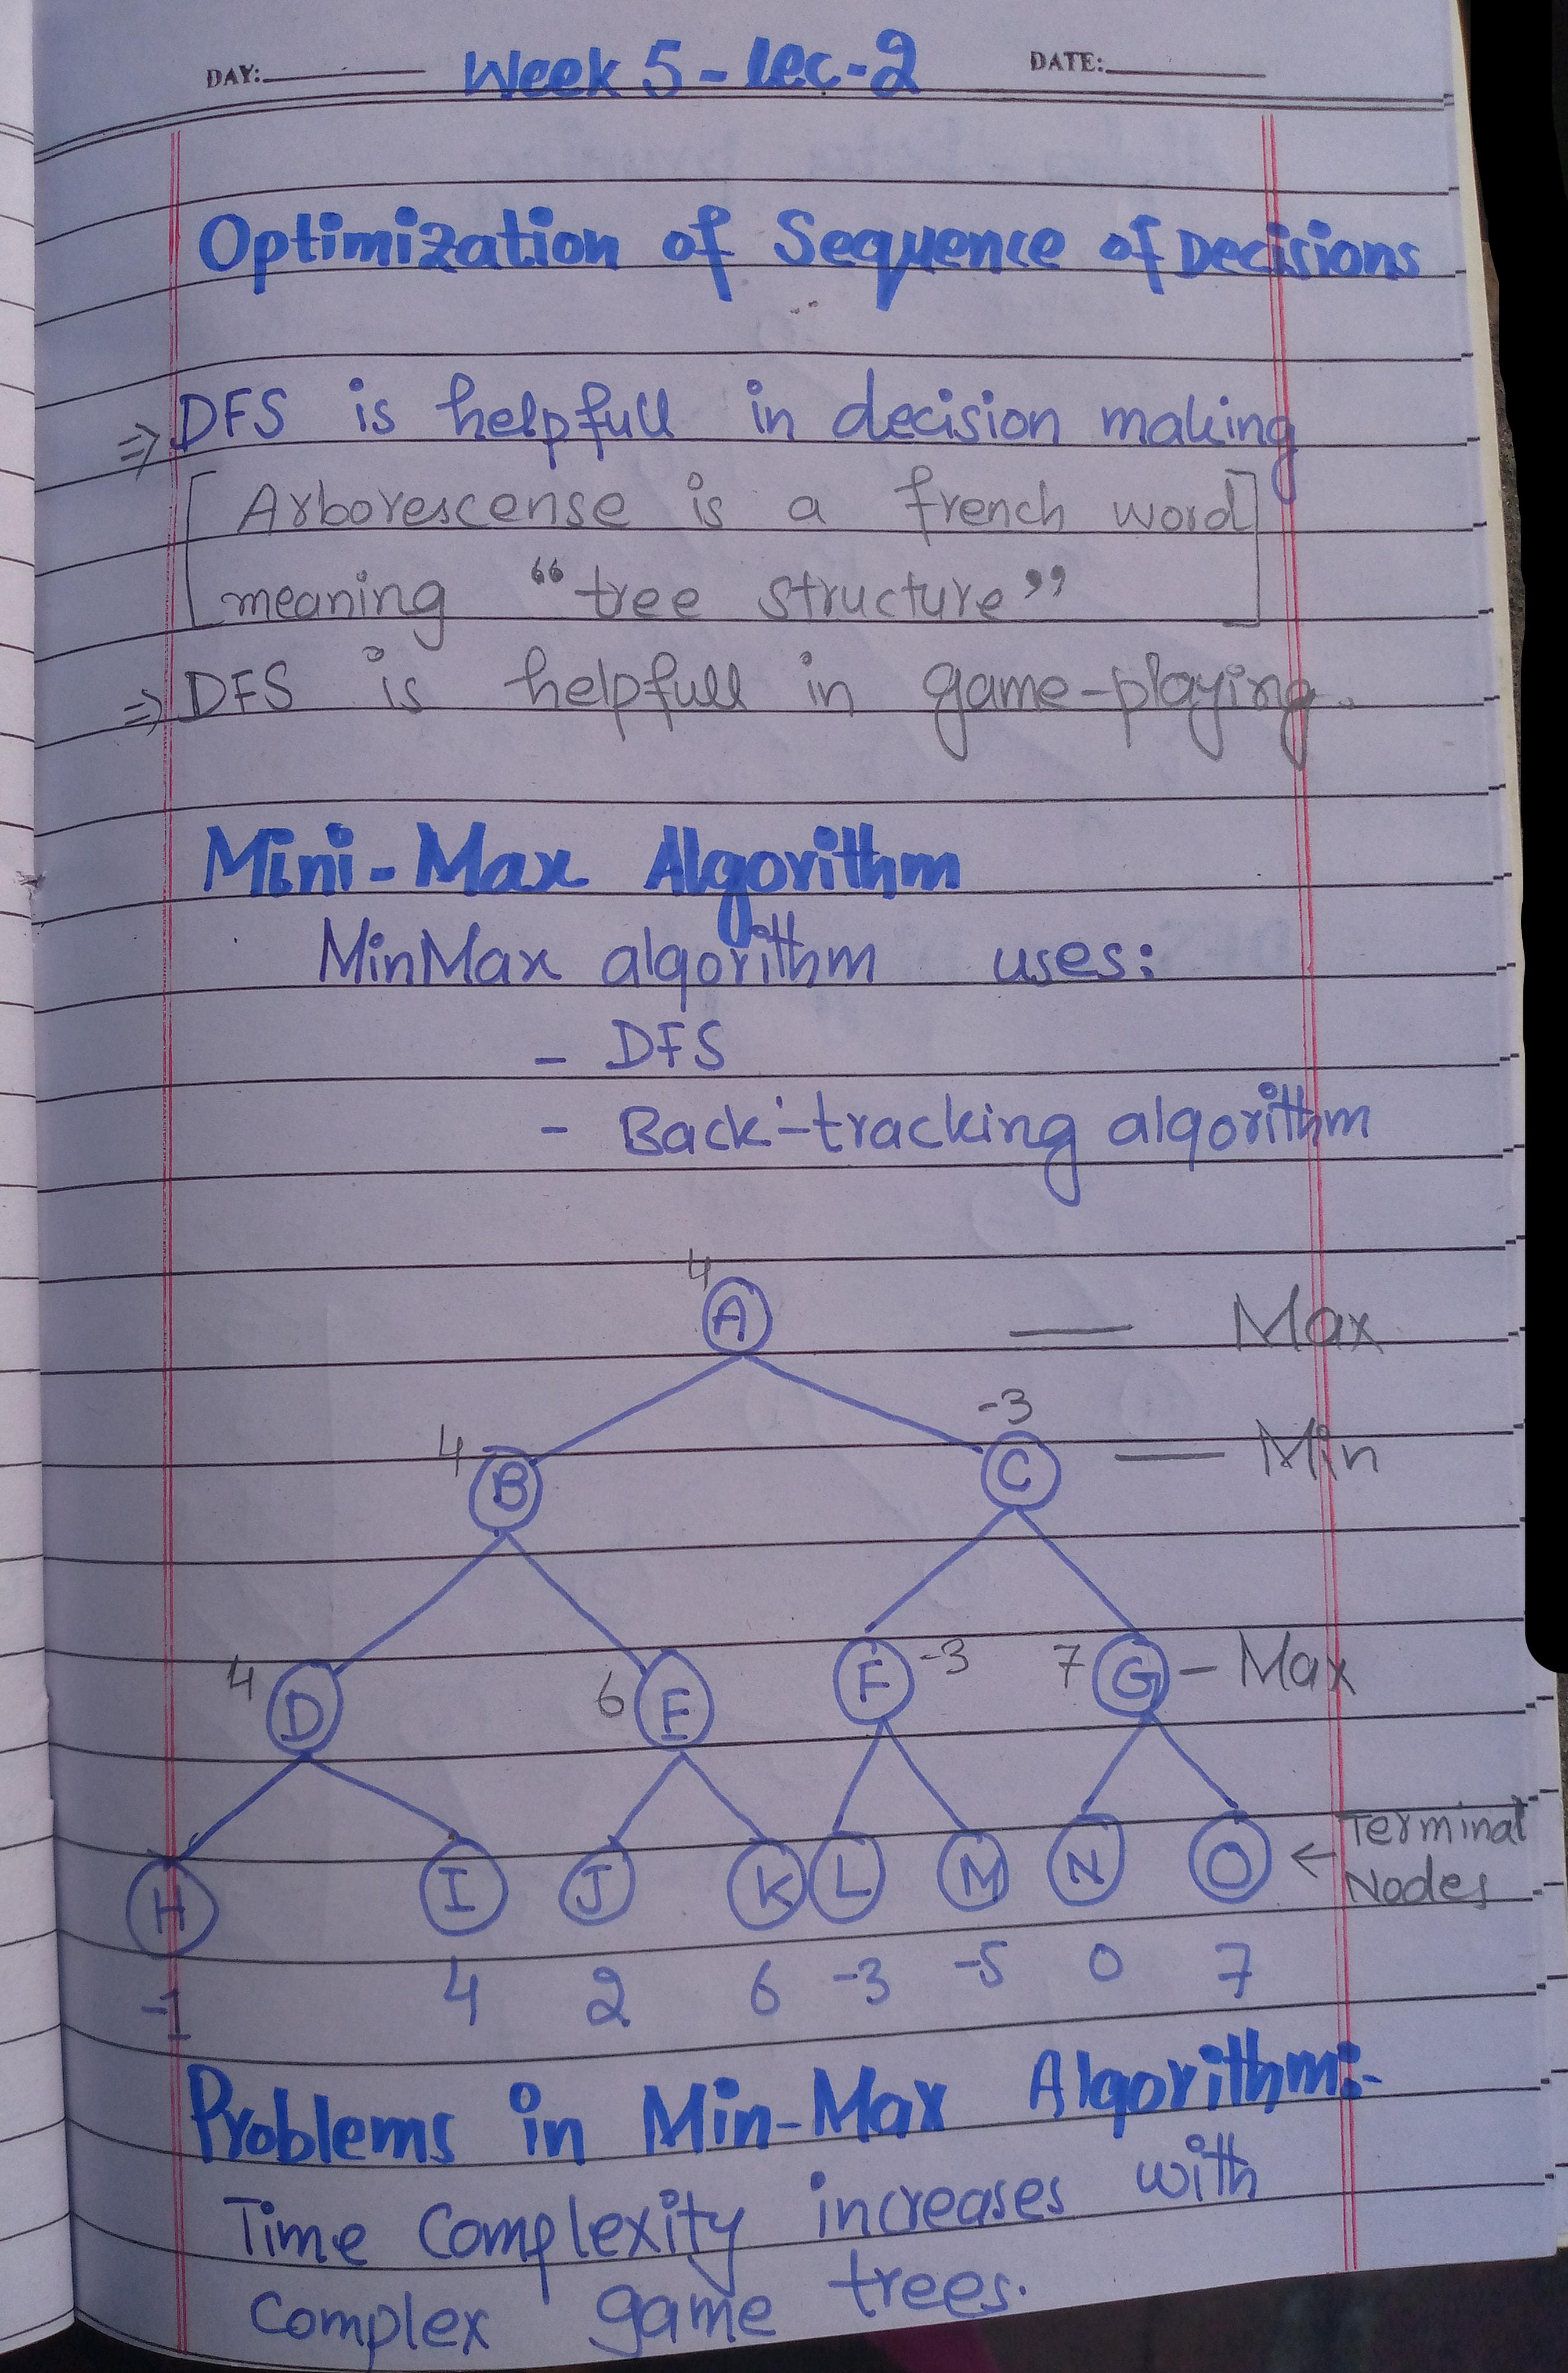 DAY: Week 5 - lec-2 DATE:
Optimization of Sequence of Decisions
⇒ DFS is helpfull in decision making
[Arborescense is a french word
meaning “tree structure”]
⇒ DFS is helpfull in game-playing.
Mini-Max Algorithm
MinMax algorithm uses:
- DFS
- Back-tracking algorithm
4
A — Max
-3
4 B C — Min
4 D 6 E F -3 7 G - Max
H I J K L M N O ← Terminal
Nodes
-1 4 2 6 -3 -5 0 7
Problems in Min-Max Algorithm:-
Time Complexity increases with
Complex game trees.